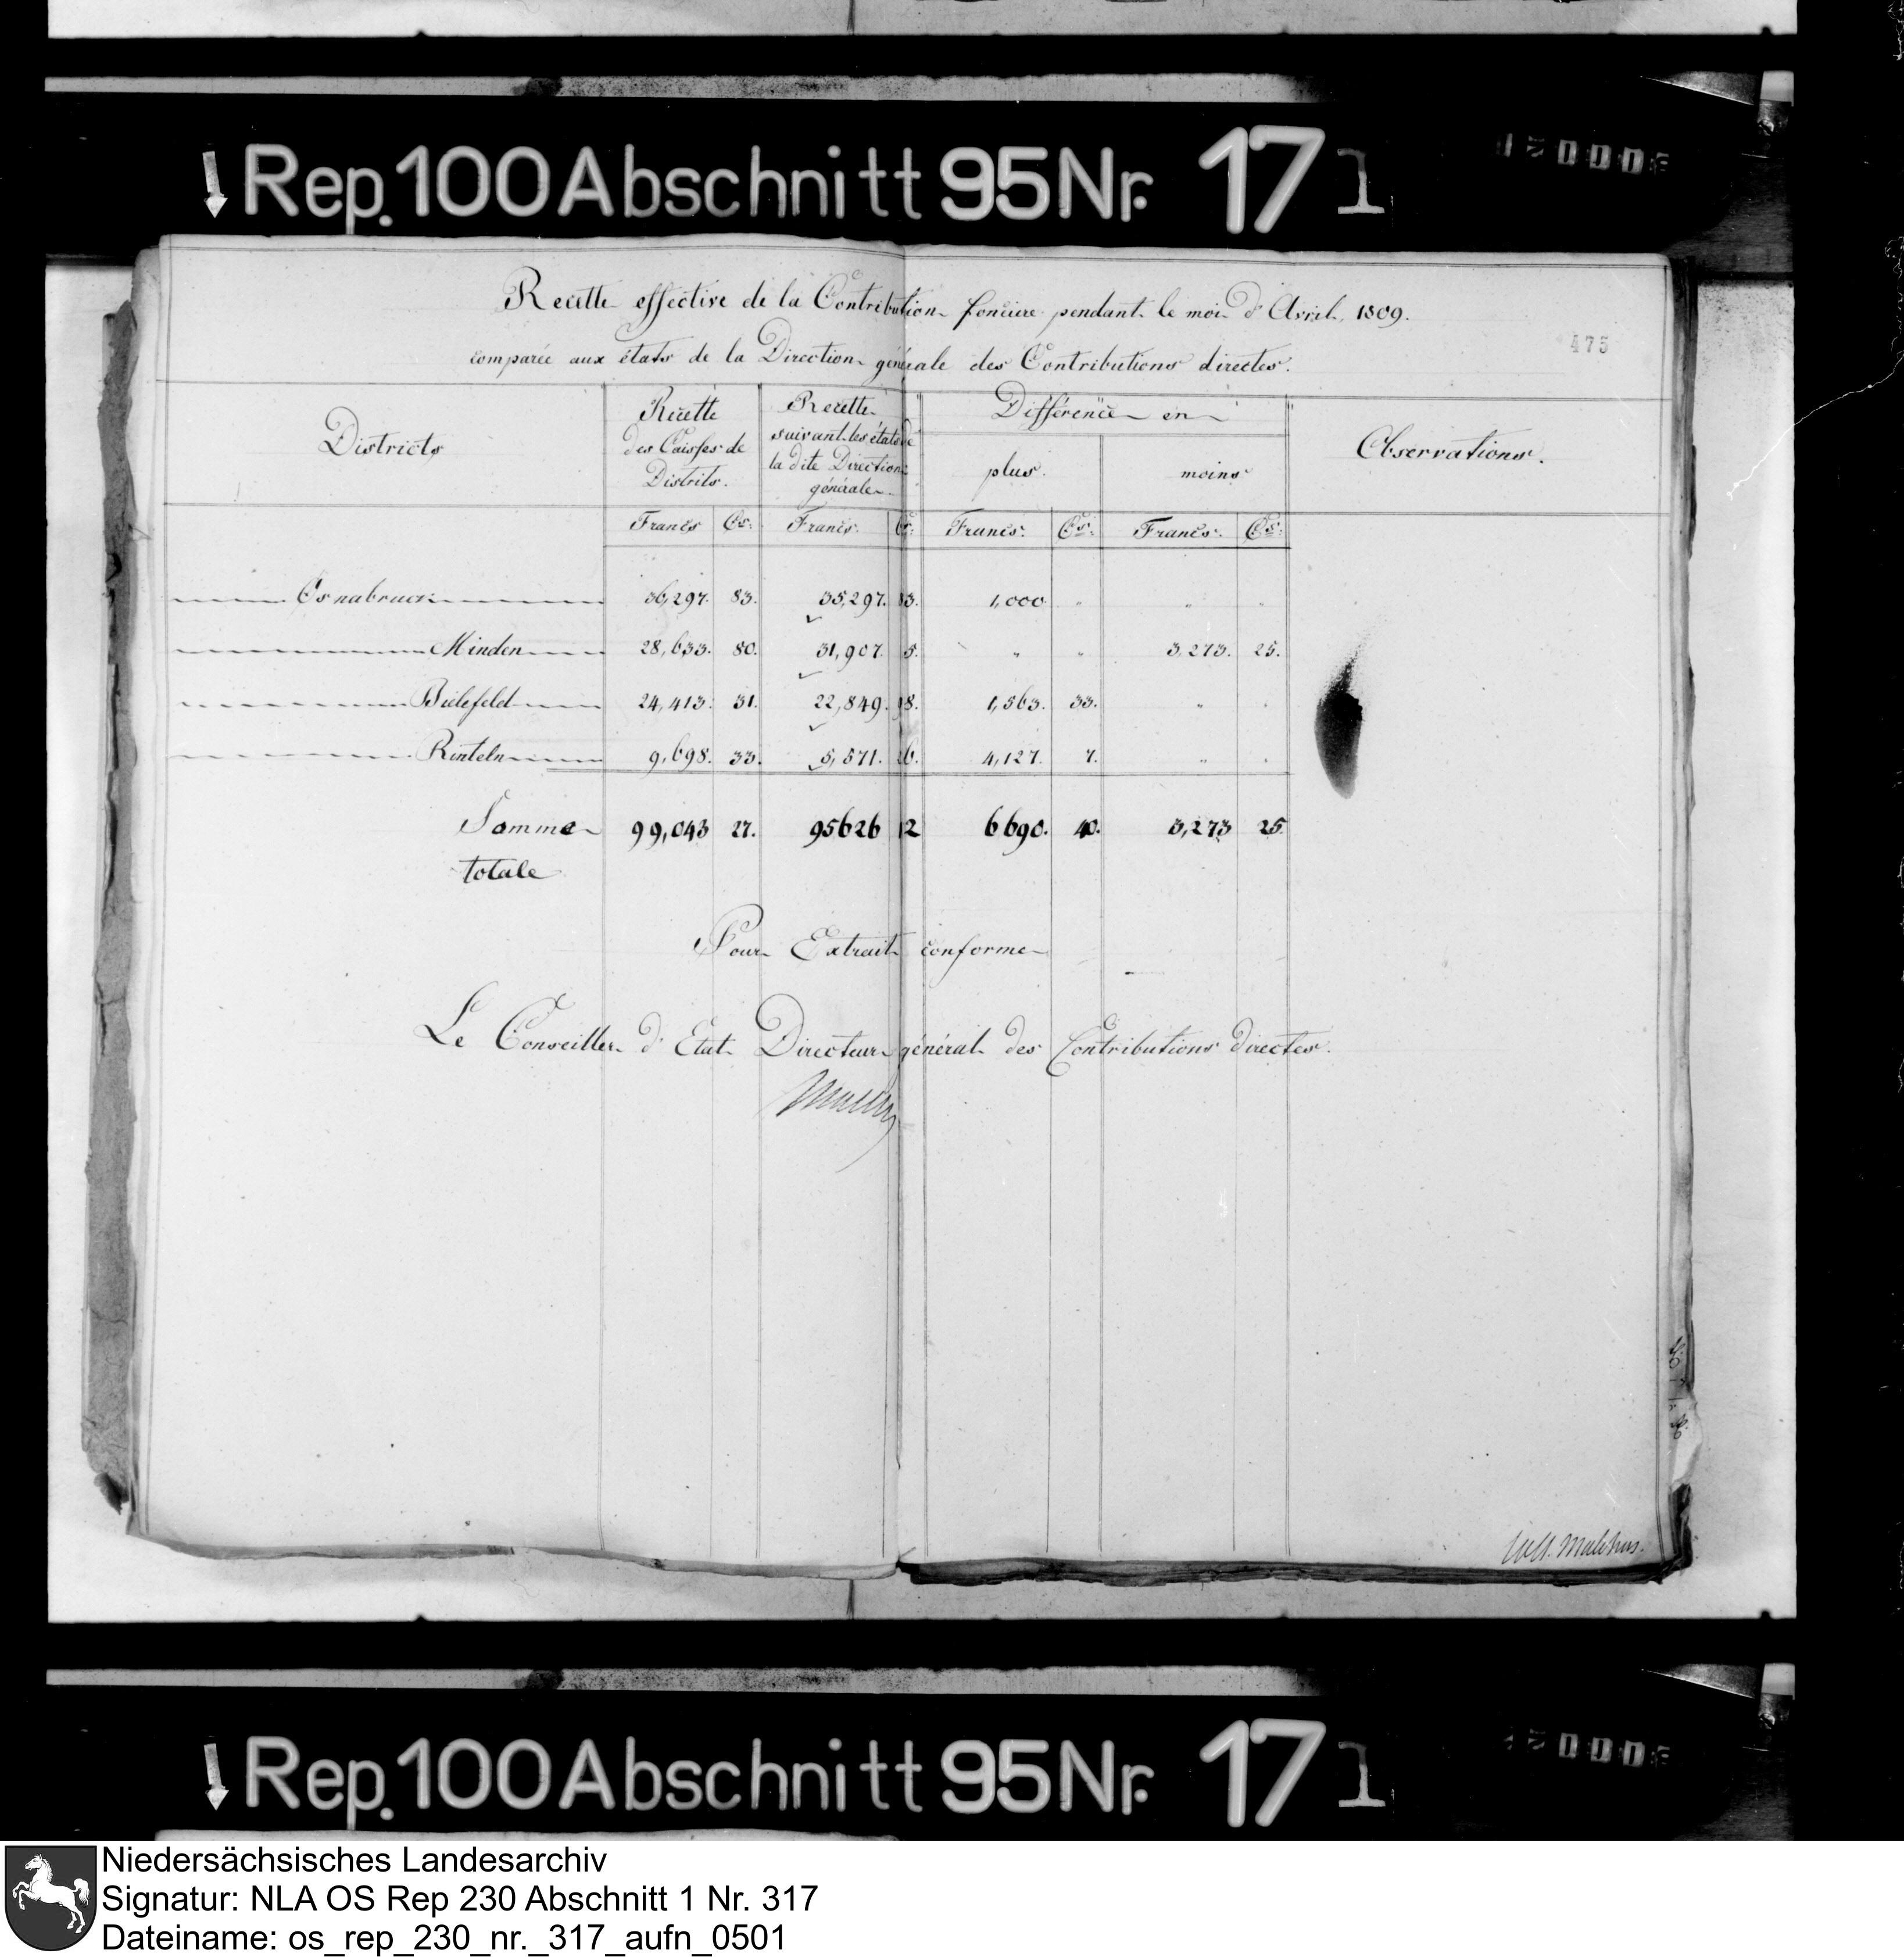 ↓ Rep. 100 Abschnitt 95 Nr. 17 1
Recette effective de la Contribution foncière pendant le mois d'Avril 1809.
comparée aux états de la Direction générale des Contributions directes.
475
Districts
Recette des Caisses de Districts.
Recette suivant les états de la dite Direction générale
Différence en
plus.
moins
Observations.
Francs Cs. Francs. Cs. Francs. Cs. Francs. Cs.
Osnabruck 36,297. 83. 35,297. 83. 1,000 " " "
Minden 28,633. 80. 31,907. 5. " " 3,273. 25.
Bielefeld 24,413. 31. 22,849. 98. 1,563. 33. " "
Rinteln 9,698. 33. 5,571. 26. 4,127. 7. " "
Somme 99,043 27. 95626 12 6690. 40. 3,273 25
totale
Pour Extrait conforme
Le Conseiller d'Etat Directeur général des Contributions directes.
Malchus.
↓ Rep. 100 Abschnitt 95 Nr. 17 1
Niedersächsisches Landesarchiv
Signatur: NLA OS Rep 230 Abschnitt 1 Nr. 317
Dateiname: os_rep_230_nr._317_aufn_0501